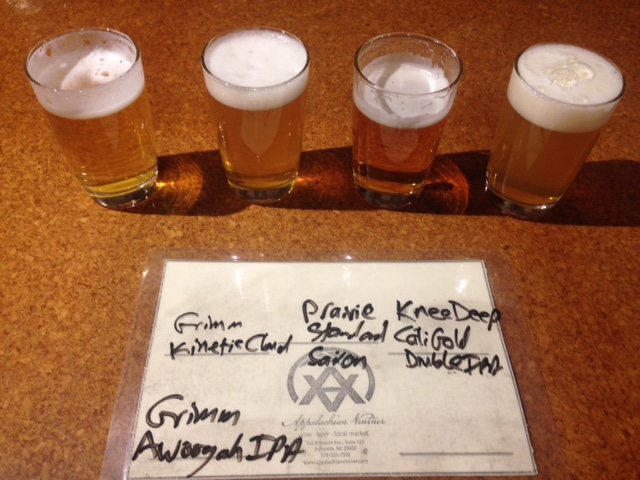 Grimm
Kinetic Cloud
Prairie
Standard
Saison
KneeDeep
Cali Gold
Double IPA
Grimm
Awoogah IPA
Appalachian Vintner
wine · beer · local market